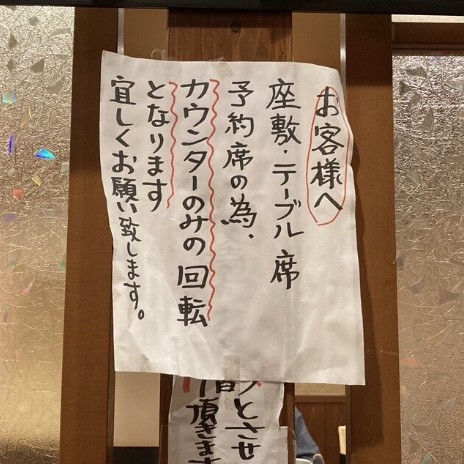 お客様へ
座敷・テーブル席
予約席の為、
カウンターのみの回転
となります
宜しくお願い致します。
とさせ
頂きます